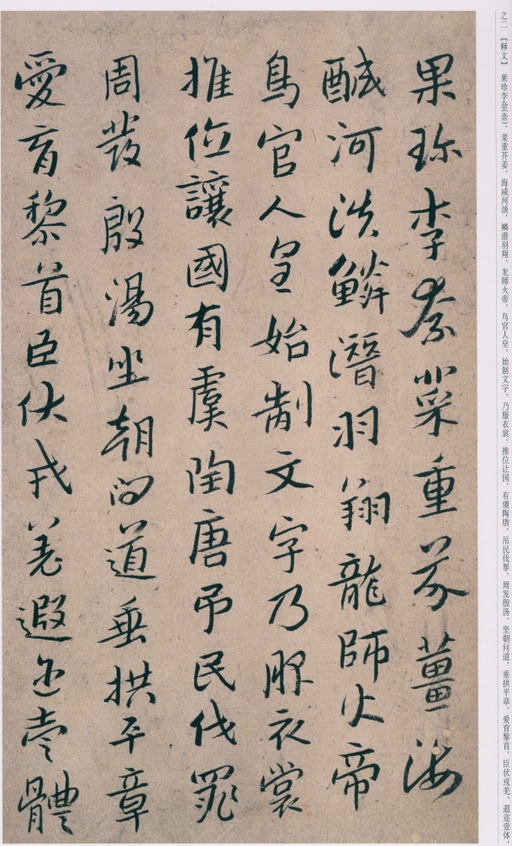 之二 【释文】 果珍李柰(柰)，菜重芥姜。海咸河淡，鳞潜羽翔。龙师火帝，鸟官人皇。始制文字，乃服衣裳。推位让国，有虞陶唐。吊民伐罪，周发殷汤。坐朝问道，垂拱平章。爱育黎首，臣伏戎羌。遐迩壹体，
果珎李柰菜重芥薑海
醎河淡鱗潛羽翔龍師火帝
鳥官人皇始制文字乃服衣裳
推位讓國有虞陶唐弔民伐罪
周發殷湯坐朝問道垂拱平章
愛育黎首臣伏戎羌遐迩壹體